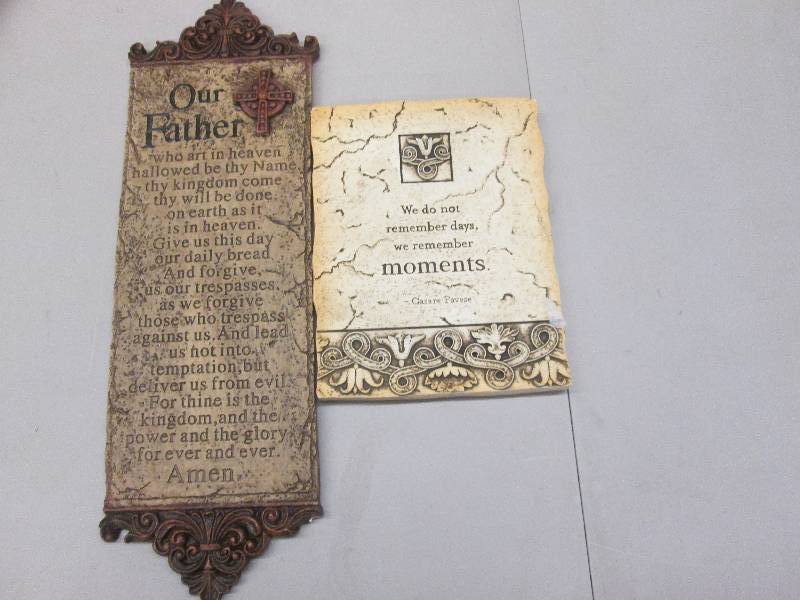 Our
Father
who art in heaven
hallowed be thy Name
thy kingdom come
thy will be done
on earth as it
is in heaven.
Give us this day
our daily bread
And forgive,
us our trespasses,
as we forgive
those who trespass
against us. And lead
us not into
temptation, but
deliver us from evil.
For thine is the
kingdom, and the
power and the glory
for ever and ever.
Amen.
We do not
remember days,
we remember
moments.
- Cesare Pavese